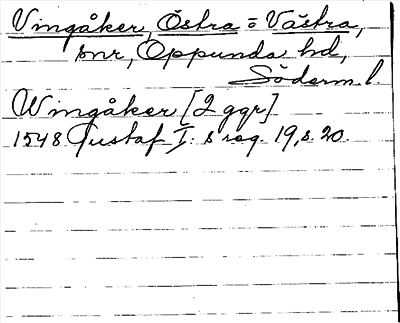 Vingåker, Östra o Västra,
snr, Oppunda hd,
Söderm. l.
Wingåker [2 ggr]
1548 Gustaf I: s reg. 19, s. 20.